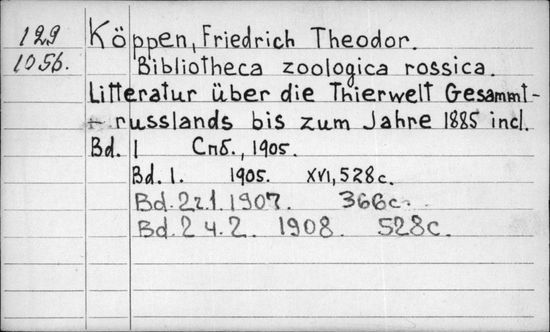 129
1056.
Köppen, Friedrich Theodor.
Bibliotheca zoologica rossica.
Litteratur über die Thierwelt Gesammt-
- russlands bis zum Jahre 1885 incl.
Bd. I Спб., 1905.
Bd. 1. 1905. XVI, 528 с.
Bd. 2 1. 1907. с.
Bd. 2 ч. 2. 1908. 528 с.